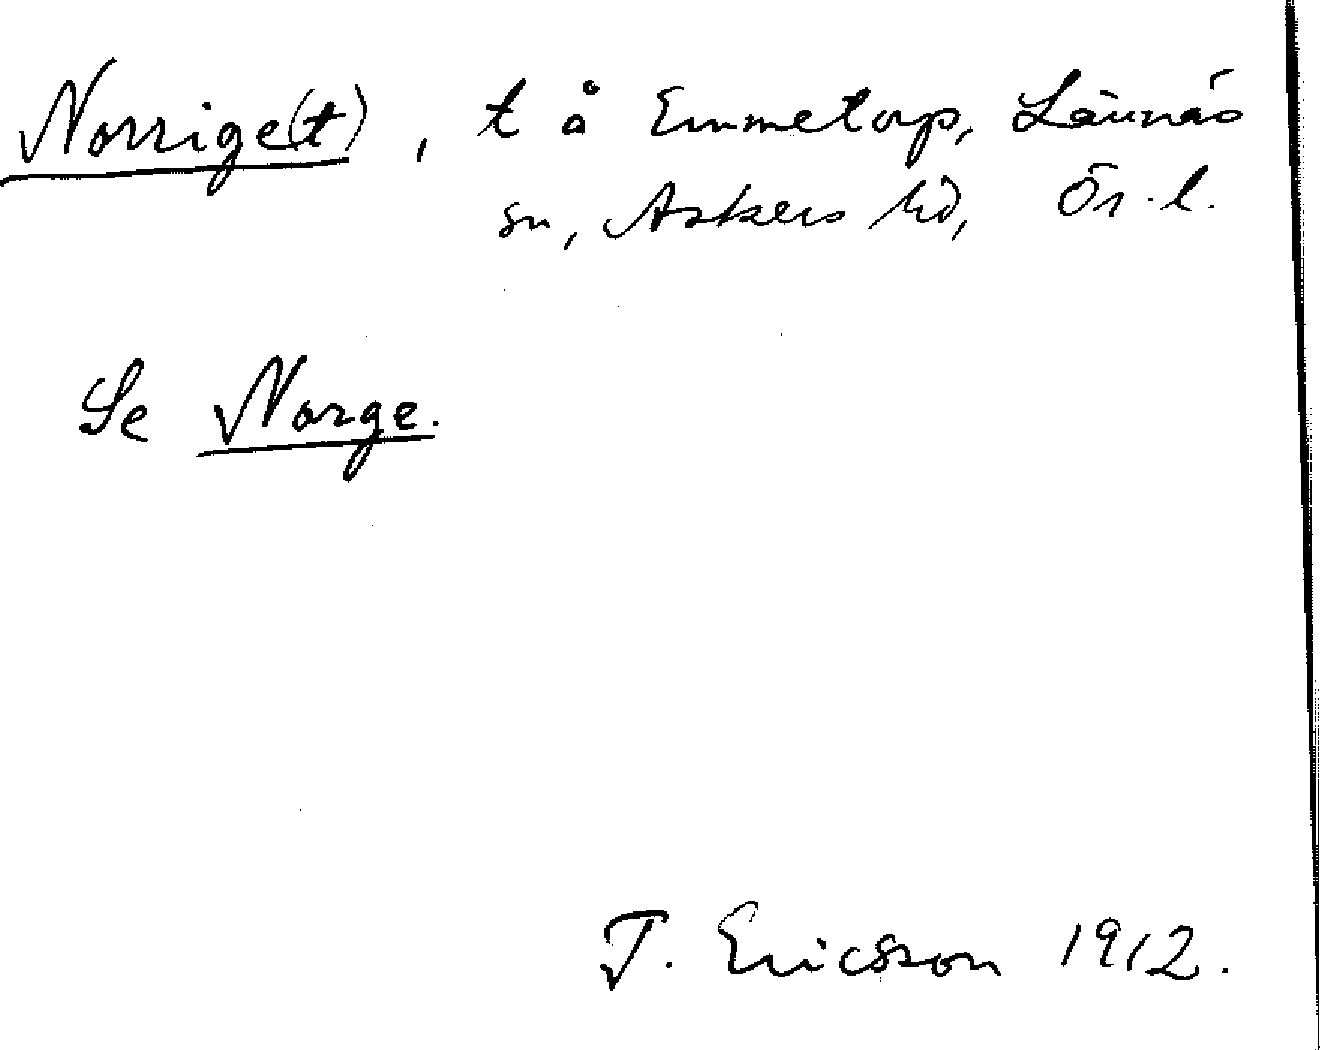 Norrige(t), t å Emmetorp, Lännäs
sn, Askers hd, Ör. l.
Se Norge.
T. Ericsson 1912.